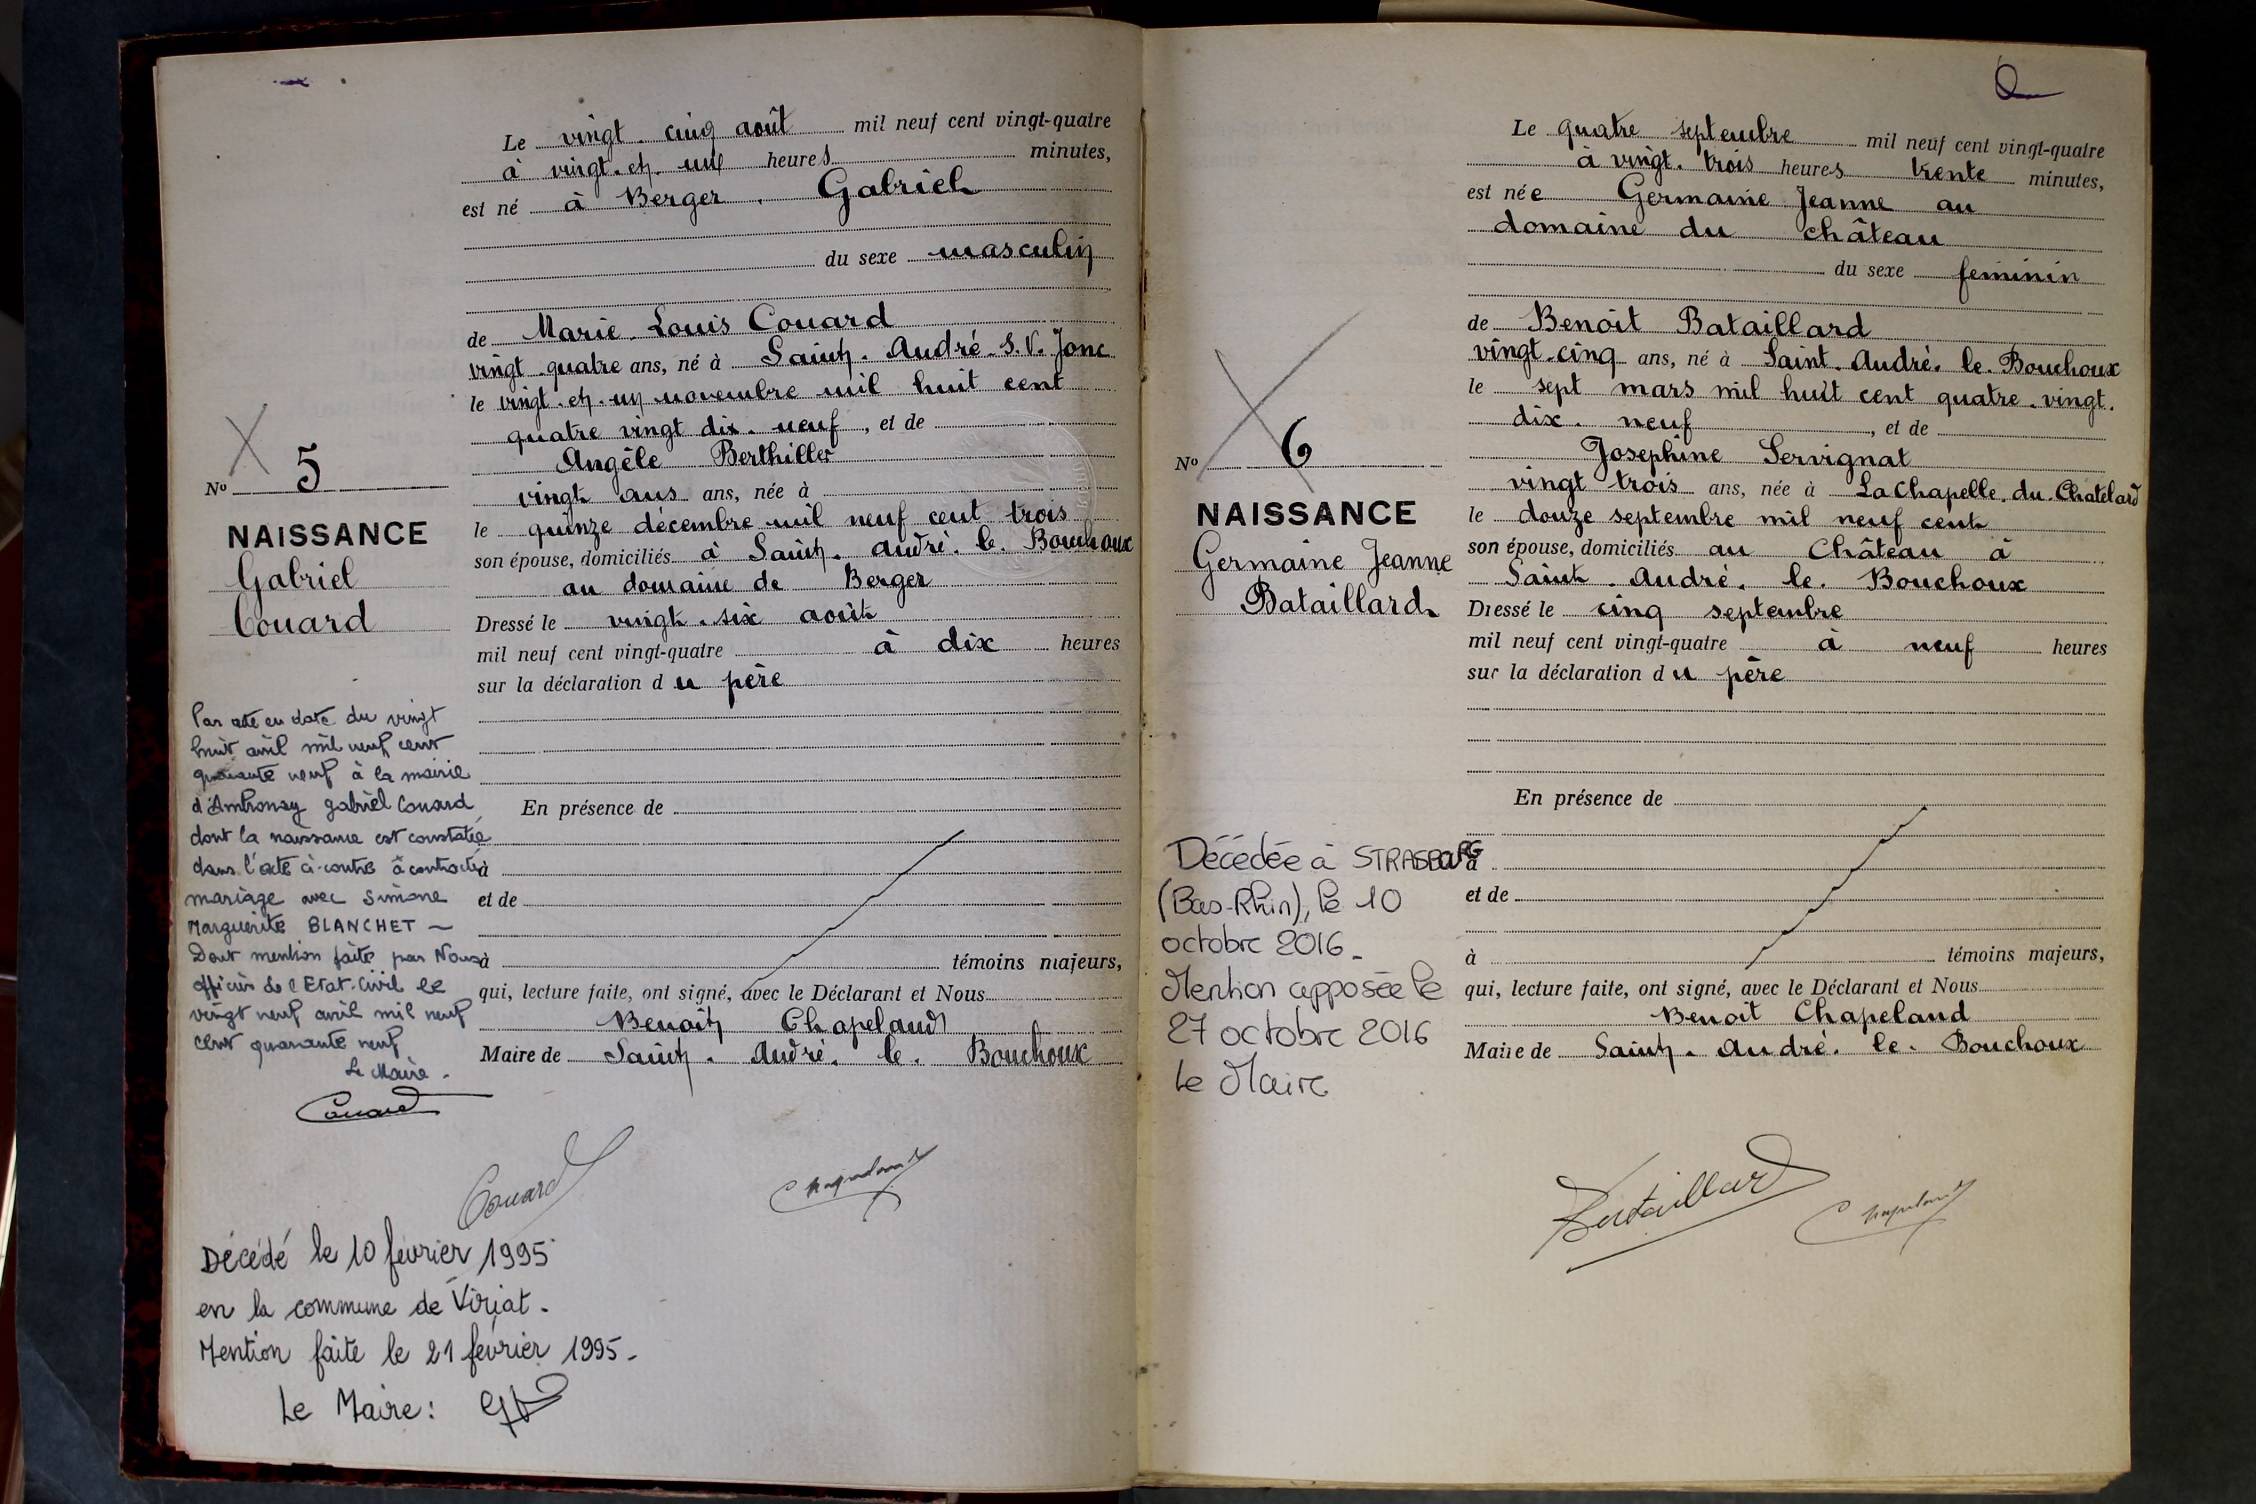 Le vingt. cinq août mil neuf cent vingt-quatre
à vingt. et. une heures minutes,
est né à Berger. Gabriel
du sexe masculin
de Marie. Louis Couard
vingt. quatre ans, né à Saint. André. s. V. Jonc
le vingt. et. un novembre mil huit cent
quatre vingt dix. neuf, et de
Angèle Berthillier
vingt ans ans, née à
le quinze décembre mil neuf cent trois
son épouse, domiciliés à Saint. André. le. Bouchoux
au domaine de Berger
Dressé le vingt. six août
mil neuf cent vingt-quatre à dix heures
sur la déclaration du père
En présence de
à
et de
à témoins majeurs,
qui, lecture faite, ont signé, avec le Déclarant et Nous
Benoit Chapeland
Maire de Saint. André. le. Bouchoux
No 5
NAISSANCE
Gabriel
Couard
Par acte en date du vingt
huit avril mil neuf cent
quarante neuf à la mairie
d'Ambronay Gabriel Couard
dont la naissance est constatée
dans l'acte ci-contre a contracté
mariage avec Simone
Marguerite BLANCHET ~
Dont mention faite par Nous
officier de l'Etat-Civil le
vingt neuf avril mil neuf
cent quarante neuf
Le Maire.
Couard
Couard
Chapeland
Décédé le 10 février 1995
en la commune de Viriat.
Mention faite le 21 février 1995-
Le Maire:
Le quatre septembre mil neuf cent vingt-quatre
à vingt. trois heures trente minutes,
est née Germaine Jeanne au
domaine du château
du sexe feminin
de Benoit Bataillard
vingt-cinq ans, né à Saint. André. le. Bouchoux
le sept mars mil huit cent quatre. vingt.
dix. neuf, et de
Josephine Servignat
vingt trois ans, née à La Chapelle. du. Chatelard
le douze septembre mil neuf cent
son épouse, domiciliés au Château à
Saint. André. le. Bouchoux
Dressé le cinq septembre
mil neuf cent vingt-quatre à neuf heures
sur la déclaration du père
En présence de
à
et de
à témoins majeurs,
qui, lecture faite, ont signé, avec le Déclarant et Nous
Benoit Chapeland
Maire de Saint. André. le. Bouchoux
No 6
NAISSANCE
Germaine Jeanne
Bataillard
Décédée à STRASBOURG
(Bas-Rhin), le 10
octobre 2016-
Mention apposée le
27 octobre 2016
Le Maire
Bataillard
Chapeland